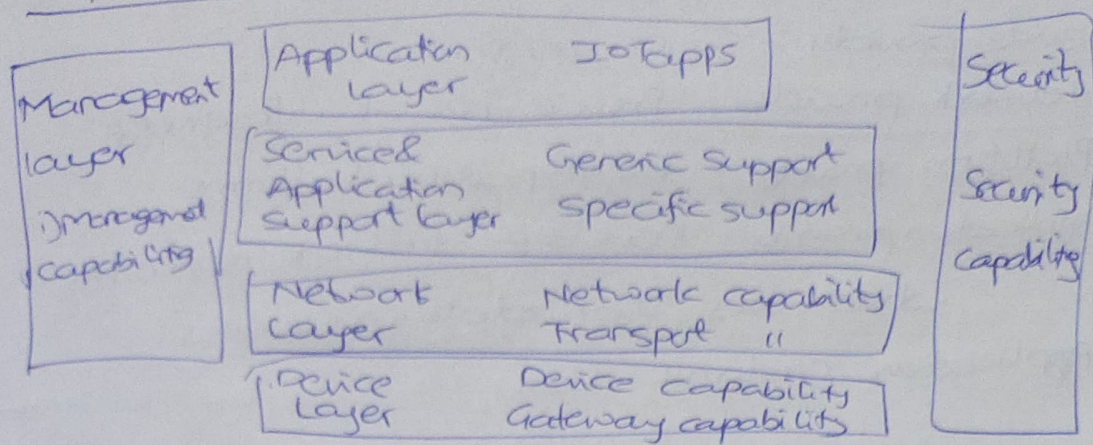 Management
layer
i) Managemet
capability
Application IOTapps
layer
Service &
Application
support layer
Generic support
specific support
Network
Layer
Network capability
Transport "
Device
Layer
Device capability
Gateway capability
Security
Security
capability